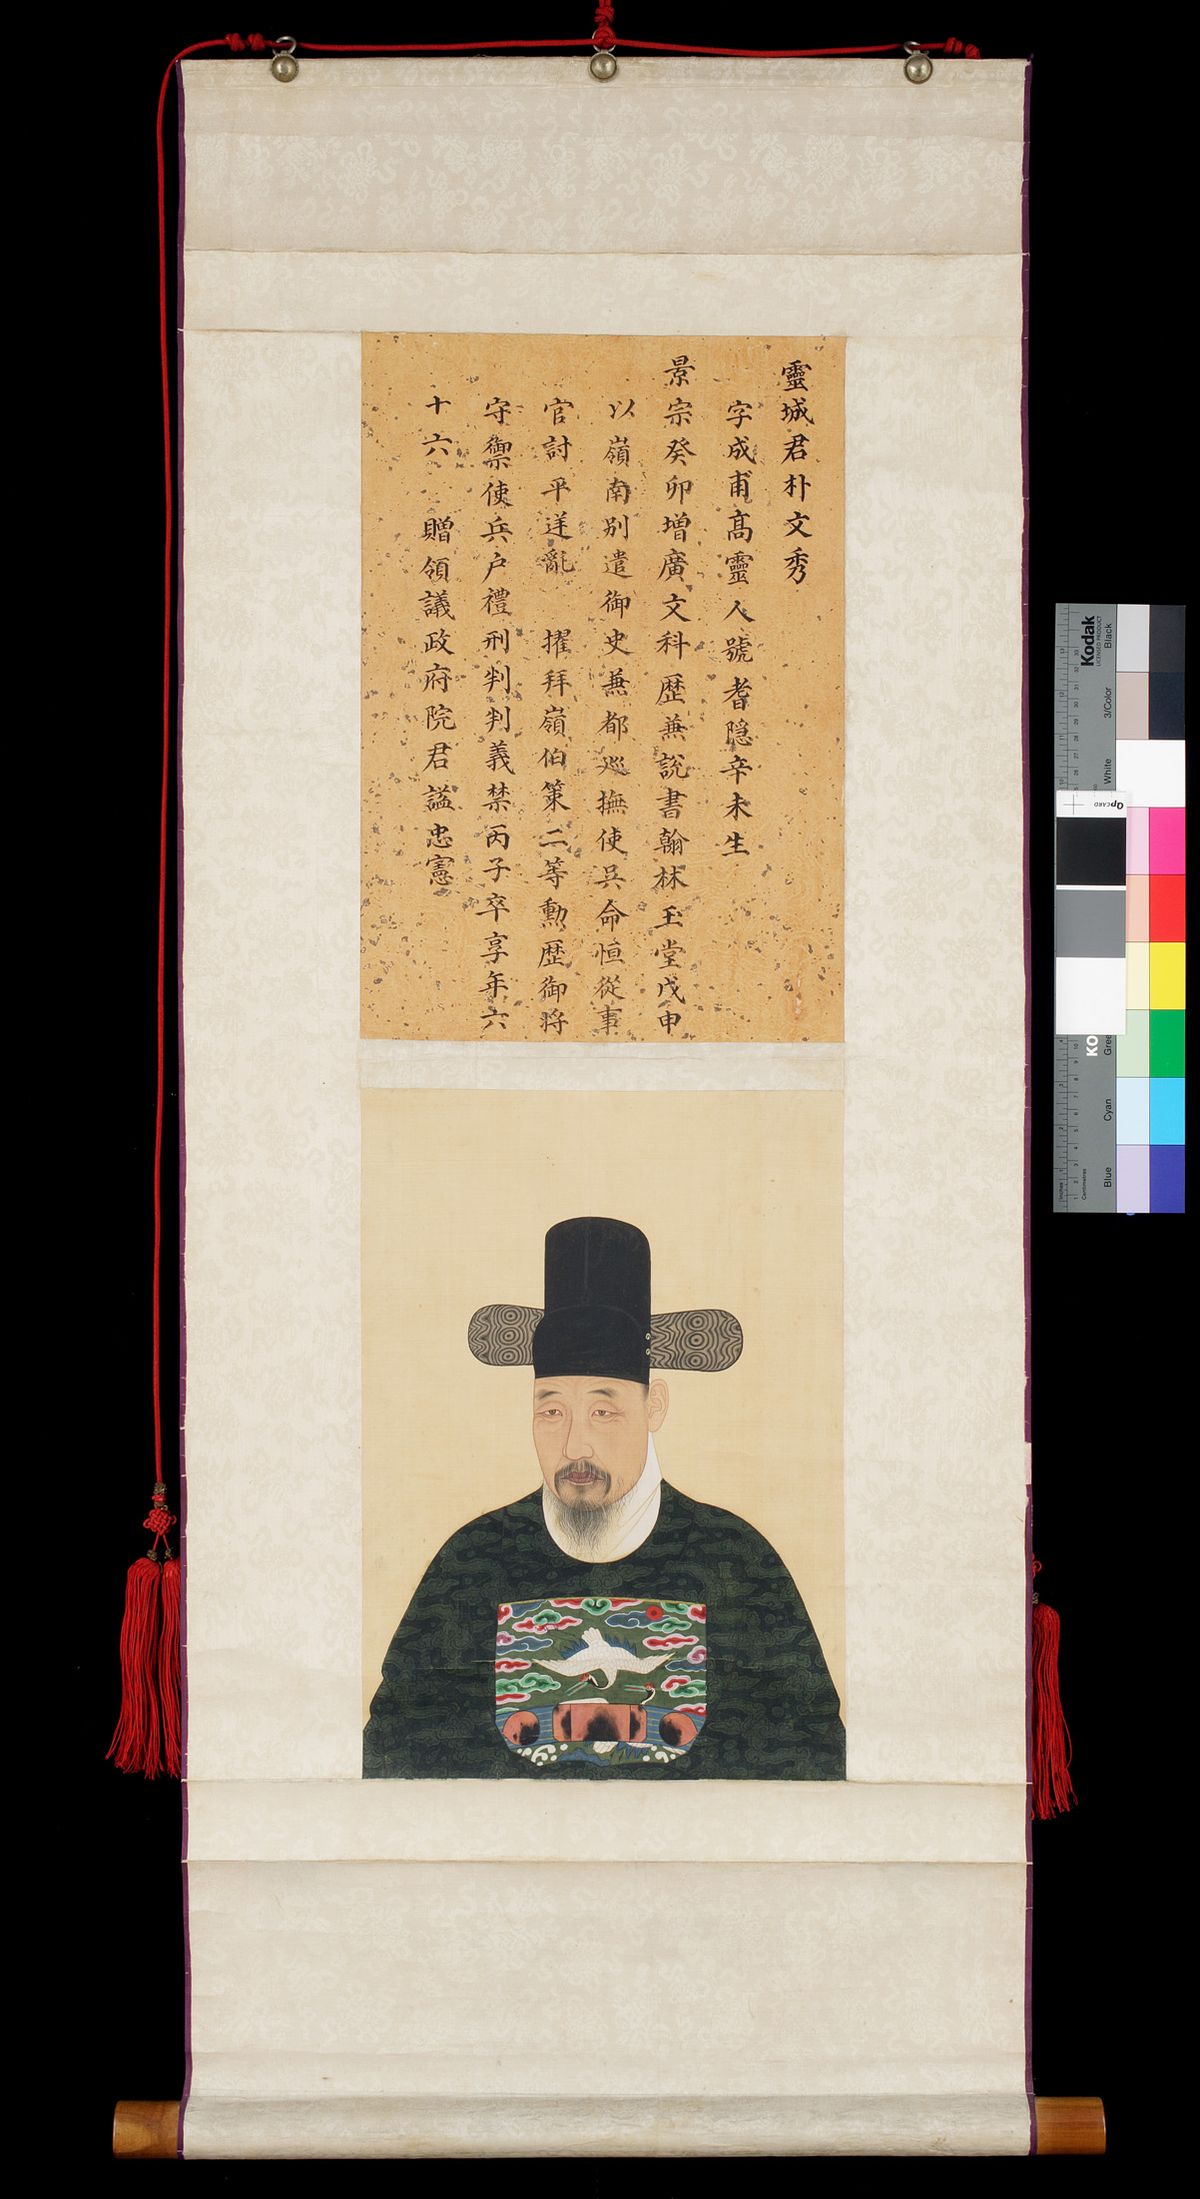 靈城君朴文秀
字成甫髙靈人號耆隱辛未生
景宗癸卯増廣文科歷兼說書翰林玉堂戊申
以嶺南別遣御史兼都巡撫使吳命恒從事
官討平逆亂 擢拜嶺伯策二等勳歷御將
守禦使兵户禮刑判判義禁丙子卒享年六
十六 贈領議政府院君謚忠憲
Kodak
LICENSED PRODUCT
Black
3/Color
White
QpCARD
KO
Gree
Cyan
Blue
Inches
Centimetres